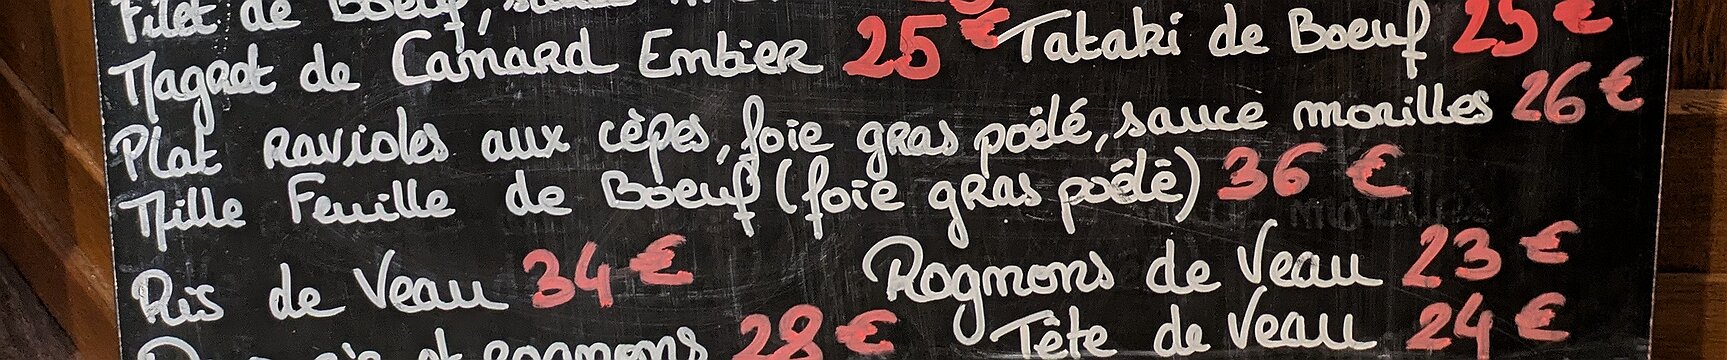 Filet de Boeuf, sauce
Magret de Canard Entier 25€ Tataki de Boeuf 25€
Plat ravioles aux cèpes, foie gras poëlé, sauce morilles 26€
Mille Feuille de Boeuf (foie gras poëlé) 36€
Ris de Veau 34€ Rognons de Veau 23€
et rognons 28€ Tête de Veau 24€